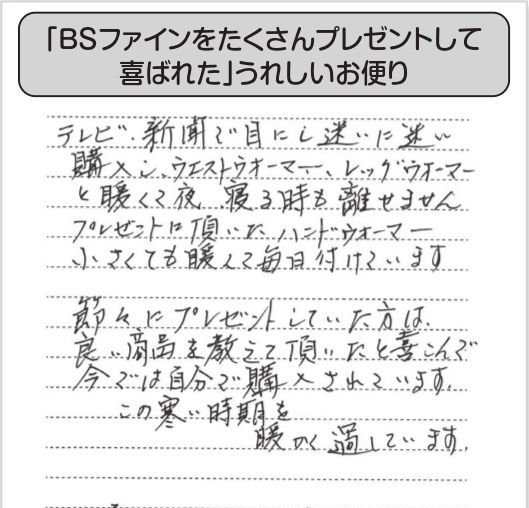 「BSファインをたくさんプレゼントして
喜ばれた」うれしいお便り
テレビ、新聞で目にし迷いに迷い
購入し、ウエストウオーマー、レッグウオーマー
と暖くて夜、寝る時も離せません
プレゼントに頂いたハンドウォーマー
小さくても暖くて毎日付けています
節々にプレゼントしていた方は、
良い商品を教えて頂いたと喜こんで
今では自分で購入されています。
この寒い時期を
暖かく過しています。